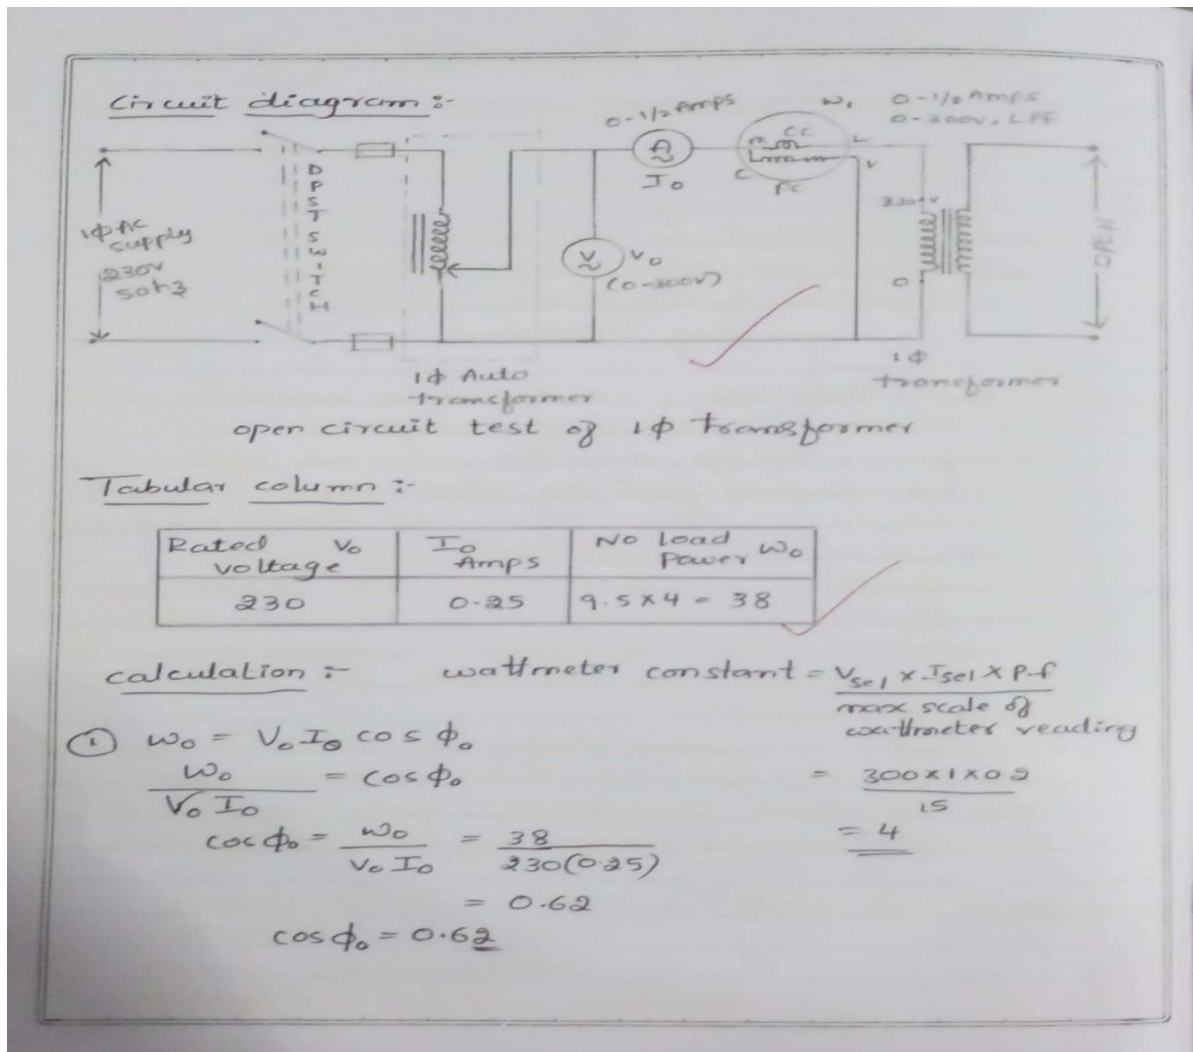 Circuit diagram :-
0-1/2 Amps
W₁
0-1/2 Amps
0-300V, LPF
CC
A
L
I₀
C
PC
V
DPST SWITCH
1ϕ AC
supply
230V
50hz
V
V₀
(0-300V)
230V
0
OPEN
1ϕ Auto
transformer
1ϕ
transformer
open circuit test of 1ϕ transformer
Tabular column :-
Rated V₀
voltage
I₀
Amps
No load
Power W₀
230
0.25
9.5 x 4 = 38
calculation :- wattmeter constant = Vsel x Isel x P.f
max scale of
wattmeter reading
① W₀ = V₀ I₀ cos ϕ₀
W₀ = cos ϕ₀
V₀ I₀
= 300 x 1 x 0.2
15
= 4
cos ϕ₀ = W₀ = 38
V₀ I₀ 230(0.25)
= 0.62
cos ϕ₀ = 0.62